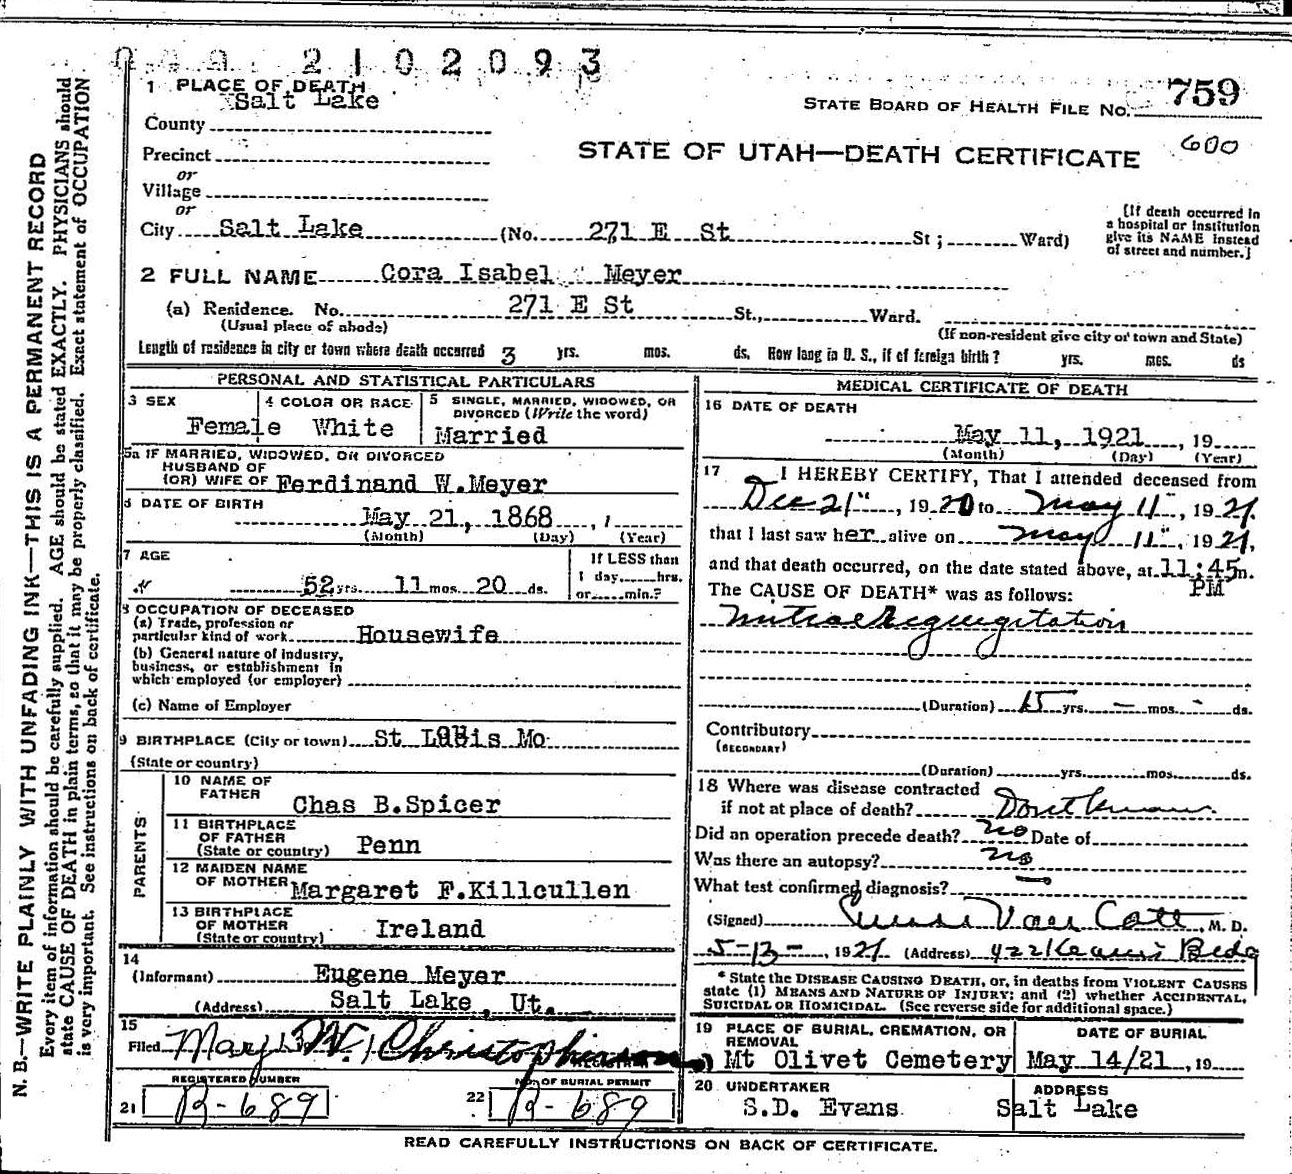 2102093
1 PLACE OF DEATH
Salt Lake
County
STATE BOARD OF HEALTH FILE No. 759
600
Precinct
STATE OF UTAH—DEATH CERTIFICATE
or
Village
or
City Salt Lake (No. 271 E St St; Ward)
[If death occurred in
a hospital or institution
give its NAME instead
of street and number.]
2 FULL NAME Cora Isabel Meyer
(a) Residence. No. 271 E St St., Ward.
(Usual place of abode)
(If non-resident give city or town and State)
Length of residence in city or town where death occurred 3 yrs. mos. ds. How long in U. S., if of foreign birth? yrs. mos. ds
PERSONAL AND STATISTICAL PARTICULARS
3 SEX
Female
4 COLOR OR RACE
White
5 SINGLE, MARRIED, WIDOWED, OR
DIVORCED (Write the word)
Married
5a IF MARRIED, WIDOWED, OR DIVORCED
HUSBAND OF
(OR) WIFE OF Ferdinand W.Meyer
6 DATE OF BIRTH
May 21, 1868
(Month) (Day) (Year)
7 AGE
52 yrs. 11 mos. 20 ds.
If LESS than
1 day, hrs.
or min.?
8 OCCUPATION OF DECEASED
(a) Trade, profession or
particular kind of work Housewife
(b) General nature of industry,
business, or establishment in
which employed (or employer)
(c) Name of Employer
9 BIRTHPLACE (City or town) St Louis Mo
(State or country)
PARENTS
10 NAME OF
FATHER
Chas B.Spicer
11 BIRTHPLACE
OF FATHER
(State or country) Penn
12 MAIDEN NAME
OF MOTHER Margaret F.Killcullen
13 BIRTHPLACE
OF MOTHER
(State or country) Ireland
14
(Informant) Eugene Meyer
(Address) Salt Lake, Ut.
15
Filed May 13 W. Christopherson
REGISTRAR
REGISTERED NUMBER
21 B-689
NO. OF BURIAL PERMIT
22 B-689
MEDICAL CERTIFICATE OF DEATH
16 DATE OF DEATH
May 11, 1921, 19
(Month) (Day) (Year)
17 I HEREBY CERTIFY, That I attended deceased from
Dec 21", 1920 to May 11", 1921.
that I last saw her alive on May 11", 1921,
and that death occurred, on the date stated above, at 11:45m.
PM
The CAUSE OF DEATH* was as follows:
Mitral Regurgitation
(Duration) 15 yrs. – mos. - ds.
Contributory
(SECONDARY)
(Duration) yrs. mos. ds.
18 Where was disease contracted
if not at place of death? Dont know
Did an operation precede death? no Date of
Was there an autopsy? no
What test confirmed diagnosis? —
(Signed) Van Cott, M. D.
5-13-, 1921 (Address) 422 Kearns Bldg
* State the DISEASE CAUSING DEATH, or, in deaths from VIOLENT CAUSES
state (1) MEANS AND NATURE OF INJURY; and (2) whether ACCIDENTAL,
SUICIDAL OR HOMICIDAL. (See reverse side for additional space.)
19 PLACE OF BURIAL, CREMATION, OR
REMOVAL
Mt Olivet Cemetery
DATE OF BURIAL
May 14/21, 19
20 UNDERTAKER
S.D. Evans
ADDRESS
Salt Lake
READ CAREFULLY INSTRUCTIONS ON BACK OF CERTIFICATE.
N. B.—WRITE PLAINLY WITH UNFADING INK—THIS IS A PERMANENT RECORD
Every item of information should be carefully supplied. AGE should be stated EXACTLY. PHYSICIANS should
state CAUSE OF DEATH in plain terms, so that it may be properly classified. Exact statement of OCCUPATION
is very important. See instructions on back of certificate.